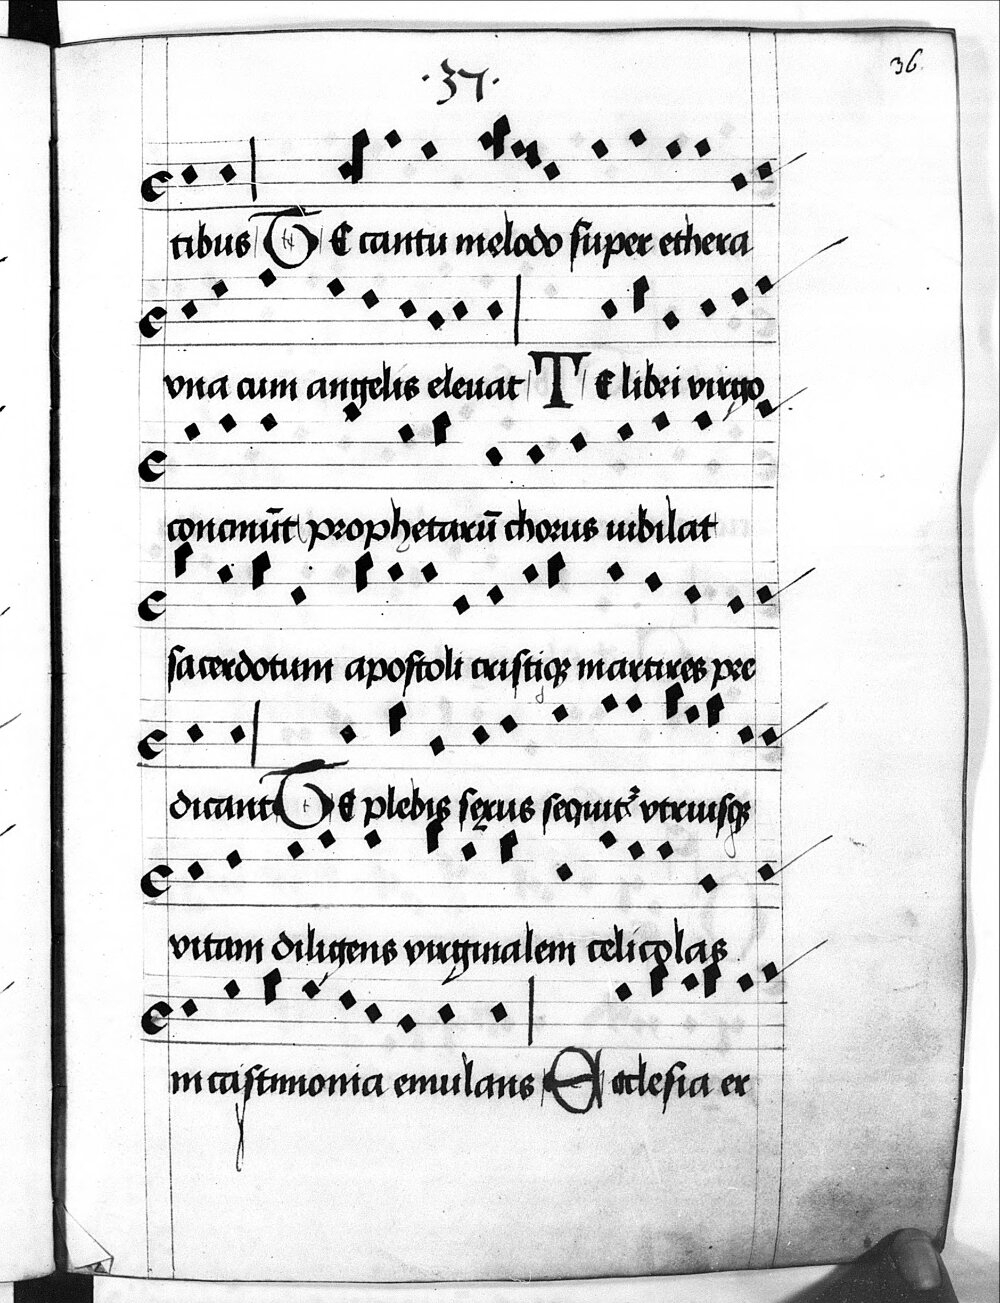 ·37·
36
tibus TE cantu melodo super ethera
vna cum angelis eleuat TE libri virgo
concinūt prophetarū chorus iubilat
sacerdotum apostoli cristiqꝫ martires pre
dicant TE plebis sexus sequitᷣ vtriusqꝫ
vitam diligens virginalem celicolas
in castimonia emulans Ecclesia er